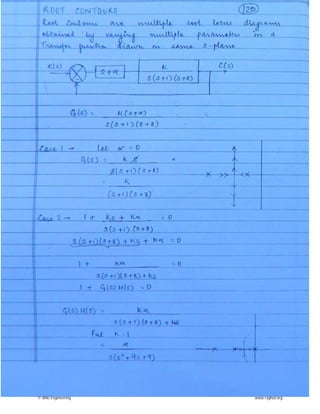 ROOT CONTOURS
120
Root Contours are multiple root locus diagrams
obtained by varying multiple parameters in a
Transfer function drawn on same s-plane.
R(s) S+α K C(s)
S(S+1)(S+8)
G(s) = K(s+α)
S(S+1)(S+8)
Case 1 → let α = 0
G(s) = K.s
s(s+1)(s+8)
= K
(s+1)(s+8)
Case 2 → 1 + Ks + Kα = 0
s(s+1)(s+8)
s(s+1)(s+8) + Ks + Kα = 0
1 + Kα = 0
s(s+1)(s+8)+Ks
1 + G(s)H(s) = 0
G(s)H(s) = Kα
s(s+1)(s+8) + Ks
Put K = 1
= α
s(s²+9s+9)